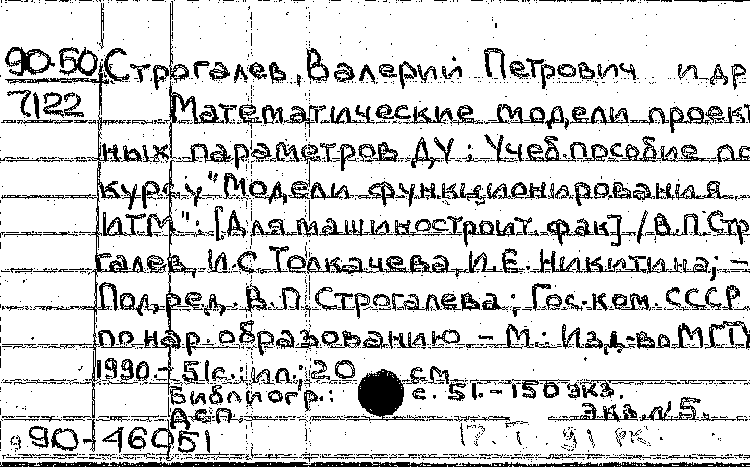 90-50 Строгалев, Валерий Петрович и др
7122 Математические модели проект
ных параметров ДУ : Учеб.пособие по
курсу "Модели функционирования
ИТМ" : [Для машиностроит. фак] / В.П. Стро
галев, И.С. Толкачева, И.Е. Никитина; –
Под ред. В.П. Строгалева ; Гос. ком. СССР
по нар. образованию – М. : Изд-во МГТУ
1990. – 51с. : ил. ; 20 см
Библиогр.: с. 51. – 150 экз.
Экз. № 5.
90-46051 17. 91 РК.